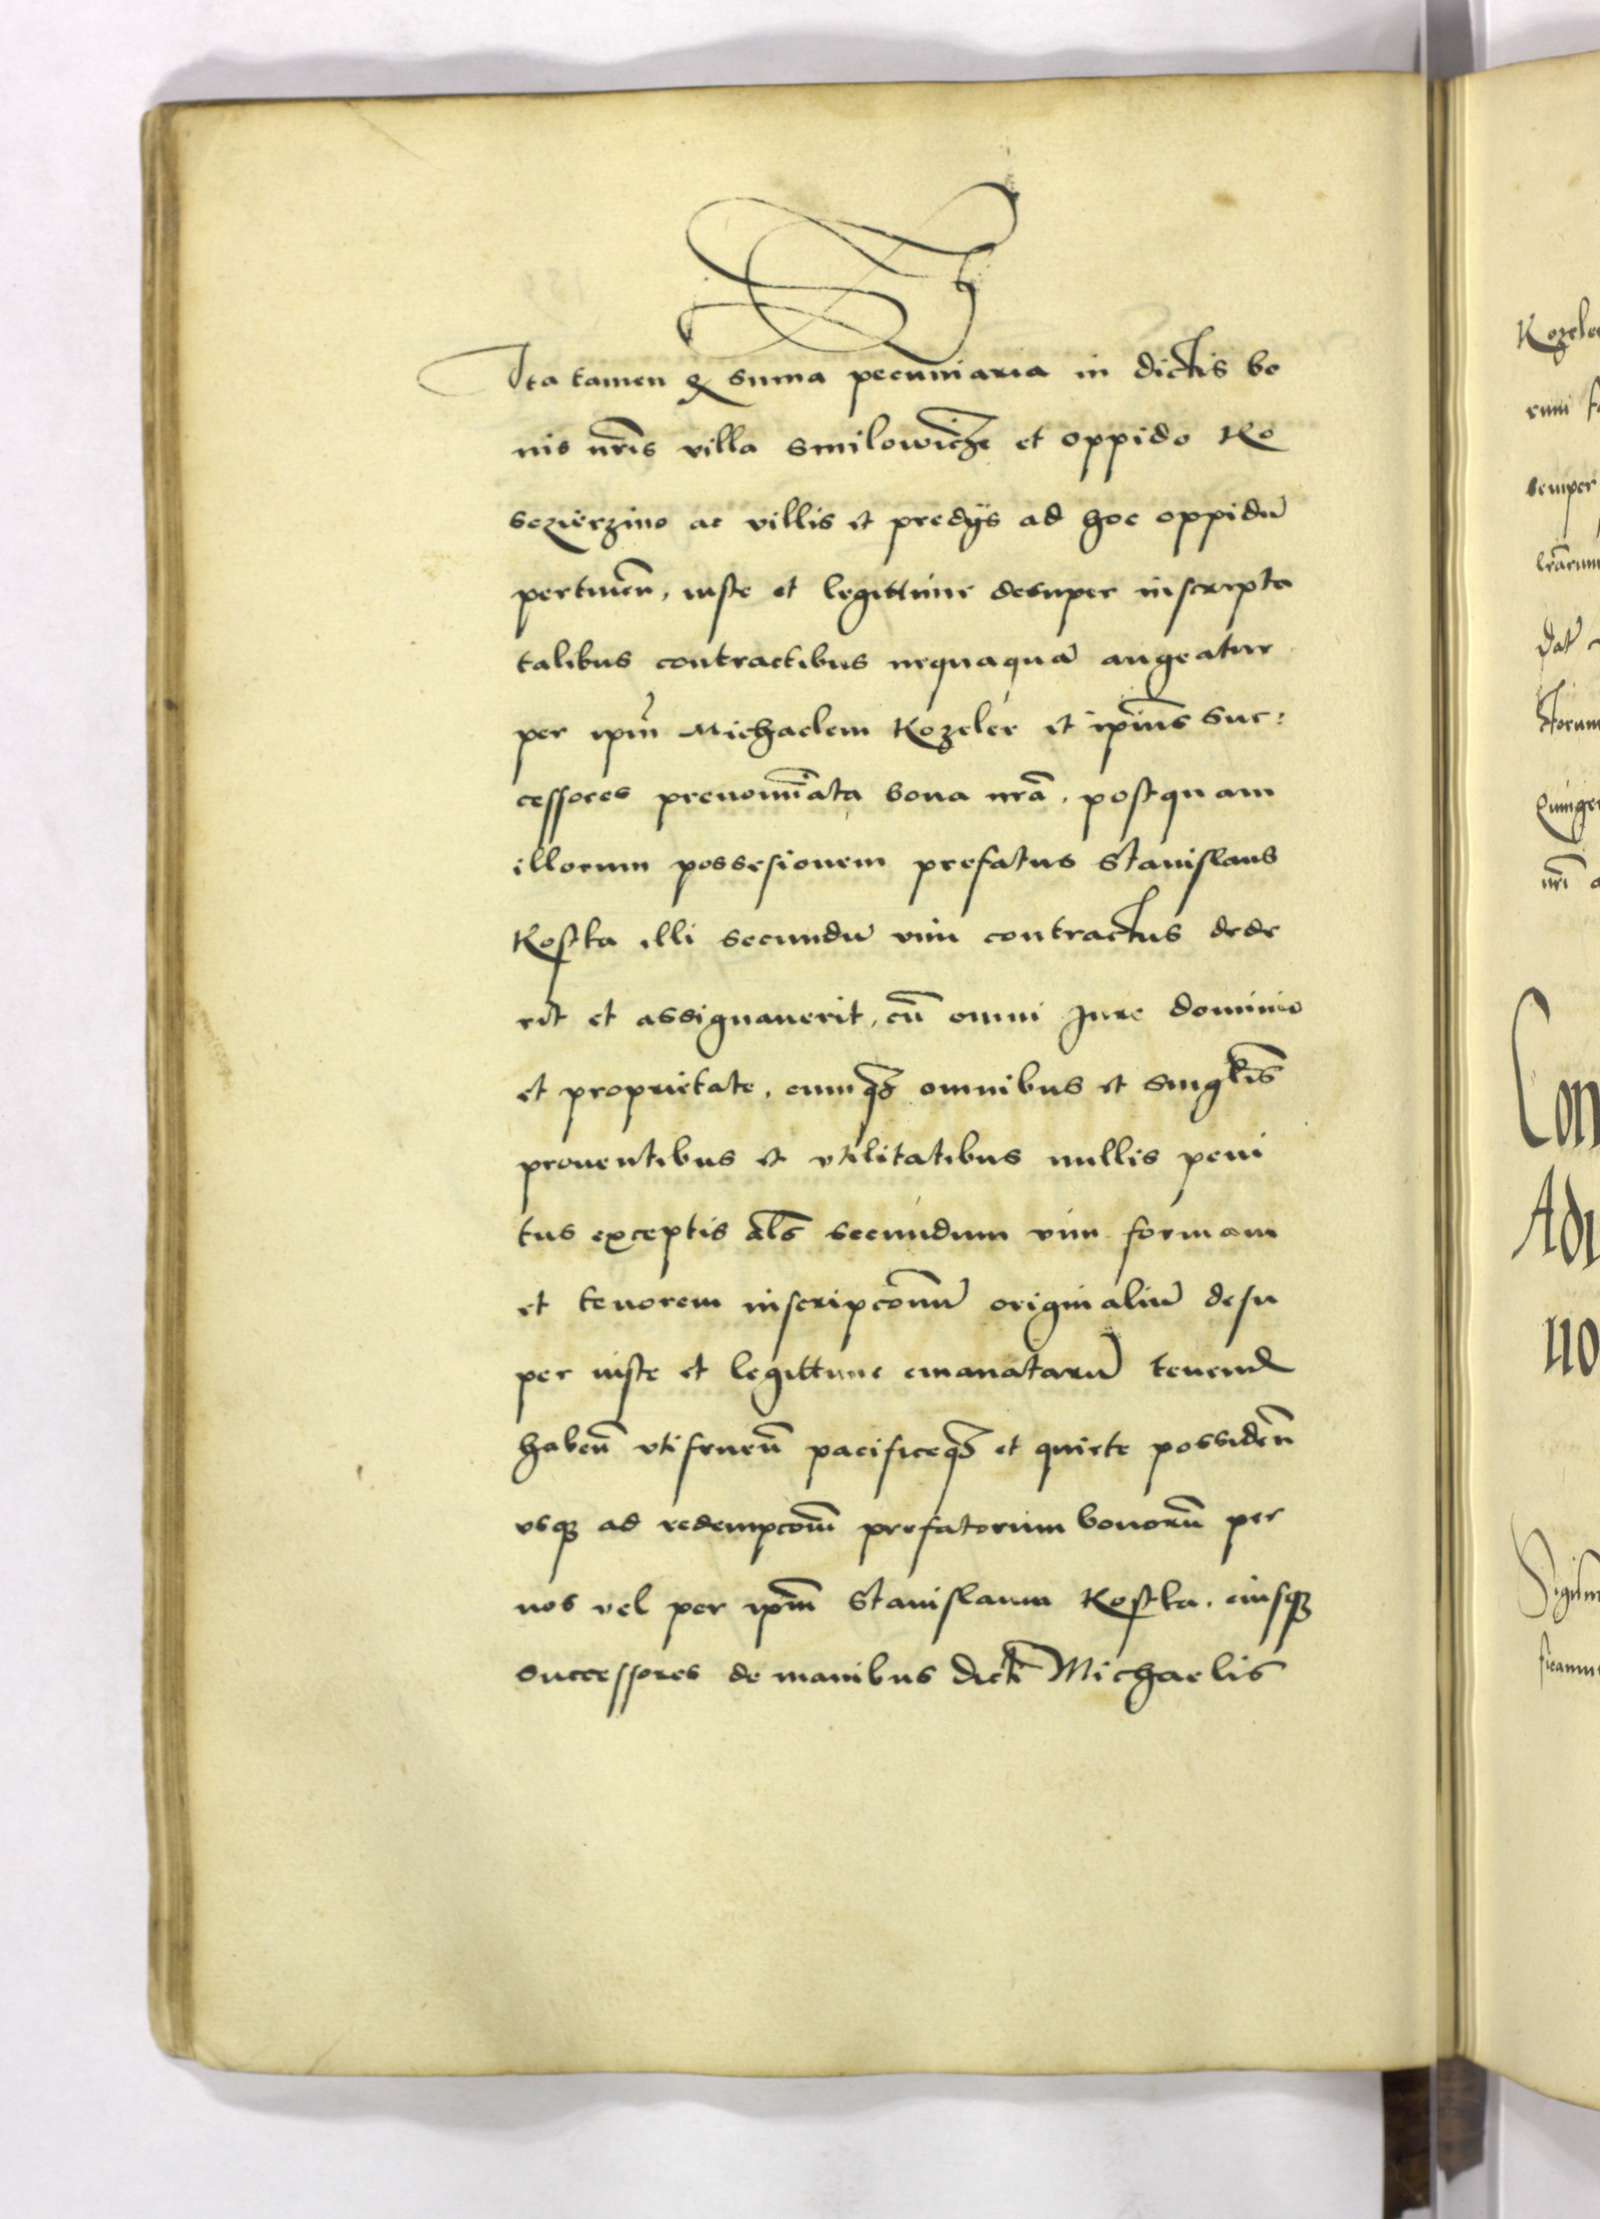 Ita tamen ꝙ suma pecuniaria in dictis bo
nis nr̃is villa Smilowicze et oppido Ko
sczierzino ac villis et predijs ad hoc oppidũ
pertineñ, iuste et legittime desuper inscripta
talibus contractibus nequaquã augeatur
per ipm̃ Michaelem Kozeler et ip̃ius suc:
cessores prenomĩata bona nrã. postquam
illorum possesionem prefatus Stanislaus
Kostka illi secundũ vim contractus dede
rit et assignauerit, cũ omni Jure dominio
et proprietate, cumqꝫ omnibus et singl̃is
prouentibus et vtilitatibus nullis peni
tus exceptis al̃s secundum vim formam
et tenorem inscripcõnũ originaliũ desu
per iuste et legittime emanatarũ tenend
habeñ vtifrueñ pacificeqꝫ et quiete possideñ
vsqꝫ ad redempcõm̃ prefatorum bonorũ per
nos vel per ipm̃ Stanislaum Kostka, eiusqꝫ
Successores de manibus dicti Michaelis
Kozele
semper
Dat
Con